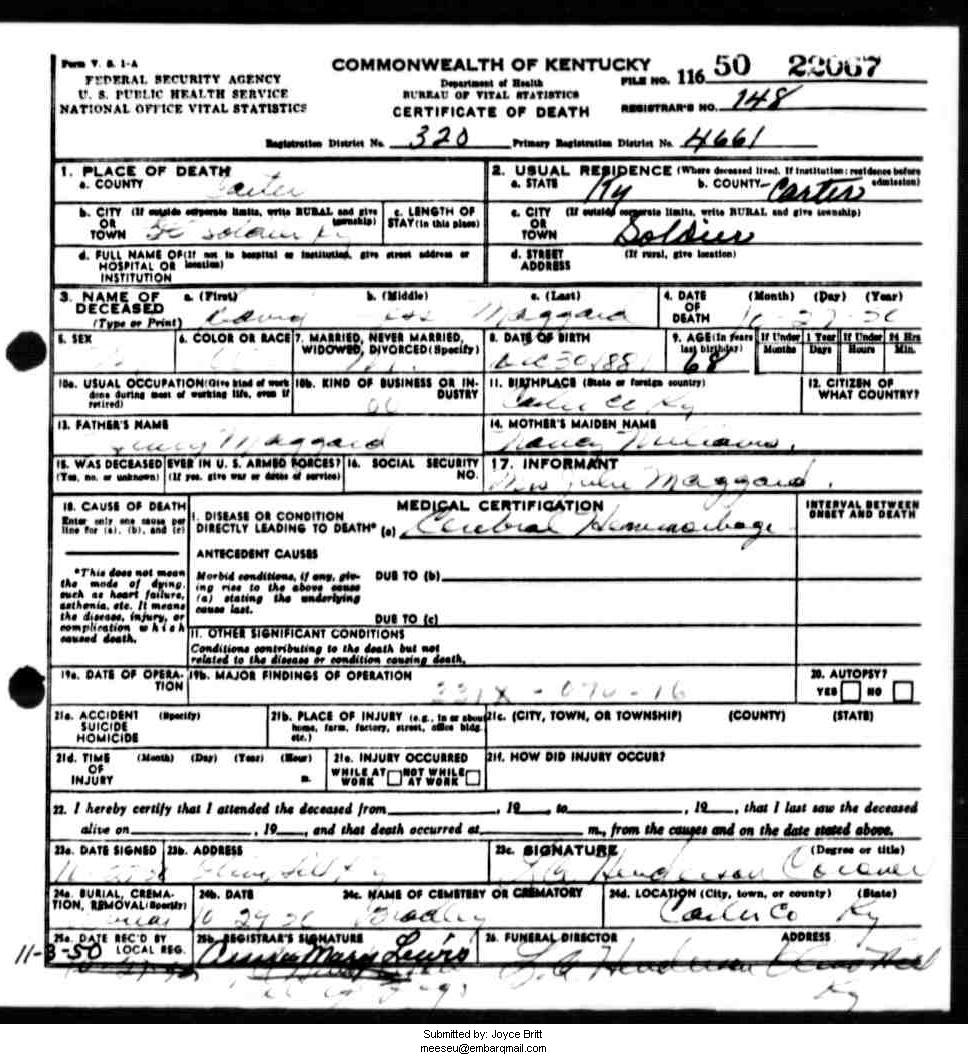 Form V. S. 1-A
FEDERAL SECURITY AGENCY
U. S. PUBLIC HEALTH SERVICE
NATIONAL OFFICE VITAL STATISTICS
COMMONWEALTH OF KENTUCKY
Department of Health
BUREAU OF VITAL STATISTICS
CERTIFICATE OF DEATH
FILE NO. 116 50 22067
REGISTRAR'S NO. 148
Registration District No. 320 Primary Registration District No. 4661
1. PLACE OF DEATH
a. COUNTY Carter
2. USUAL RESIDENCE (Where deceased lived. If institution: residence before admission)
a. STATE Ky b. COUNTY Carter
b. CITY (If outside corporate limits, write RURAL and give township)
OR
TOWN Soldier Ky
c. LENGTH OF
STAY (in this place)
c. CITY (If outside corporate limits, write RURAL and give township)
OR
TOWN Soldier
d. FULL NAME OF (If not in hospital or institution, give street address or location)
HOSPITAL OR
INSTITUTION
d. STREET (If rural, give location)
ADDRESS
3. NAME OF DECEASED
(Type or Print)
a. (First) b. (Middle) c. (Last)
David Maggard
4. DATE OF DEATH (Month) (Day) (Year)
10-27-50
5. SEX
6. COLOR OR RACE
7. MARRIED, NEVER MARRIED, WIDOWED, DIVORCED (Specify)
8. DATE OF BIRTH
Dec 30 1881
9. AGE (In years last birthday) 68
If Under 1 Year Months Days
If Under 24 Hrs Hours Min.
10a. USUAL OCCUPATION (Give kind of work done during most of working life, even if retired)
10b. KIND OF BUSINESS OR INDUSTRY
11. BIRTHPLACE (State or foreign country)
Carter Co Ky
12. CITIZEN OF WHAT COUNTRY?
13. FATHER'S NAME
Henry Maggard
14. MOTHER'S MAIDEN NAME
Nancy Williams.
15. WAS DECEASED EVER IN U. S. ARMED FORCES?
(Yes, no, or unknown) (If yes, give war or dates of service)
16. SOCIAL SECURITY NO.
17. INFORMANT
Mrs Julie Maggard.
18. CAUSE OF DEATH
Enter only one cause per line for (a), (b), and (c)
*This does not mean the mode of dying, such as heart failure, asthenia, etc. It means the disease, injury, or complication which caused death.
MEDICAL CERTIFICATION
I. DISEASE OR CONDITION
DIRECTLY LEADING TO DEATH* (a) Cerebral Hemmorhage
ANTECEDENT CAUSES
Morbid conditions, if any, giving rise to the above cause (a) stating the underlying cause last.
DUE TO (b)
DUE TO (c)
11. OTHER SIGNIFICANT CONDITIONS
Conditions contributing to the death but not
related to the disease or condition causing death.
INTERVAL BETWEEN
ONSET AND DEATH
19a. DATE OF OPERATION
19b. MAJOR FINDINGS OF OPERATION
331X - 070 - 16
20. AUTOPSY?
YES NO
21a. ACCIDENT (Specify)
SUICIDE
HOMICIDE
21b. PLACE OF INJURY (e.g., in or about home, farm, factory, street, office bldg. etc.)
21c. (CITY, TOWN, OR TOWNSHIP) (COUNTY) (STATE)
21d. TIME (Month) (Day) (Year) (Hour)
OF
INJURY m.
21e. INJURY OCCURRED
WHILE AT WORK NOT WHILE AT WORK
21f. HOW DID INJURY OCCUR?
22. I hereby certify that I attended the deceased from , 19 , to , 19 , that I last saw the deceased
alive on , 19 , and that death occurred at m., from the causes and on the date stated above.
23a. DATE SIGNED
23b. ADDRESS
23c. SIGNATURE (Degree or title)
Henderson Coroner
24a. BURIAL, CREMATION, REMOVAL (Specify)
24b. DATE
10 29 50
24c. NAME OF CEMETERY OR CREMATORY
Bradley
24d. LOCATION (City, town, or county) (State)
Carter Co Ky
25a. DATE REC'D BY LOCAL REG.
11-3-50
25b. REGISTRAR'S SIGNATURE
Mary Lewis
26. FUNERAL DIRECTOR ADDRESS
Henderson
Ky
Submitted by: Joyce Britt
meeseu@embarqmail.com